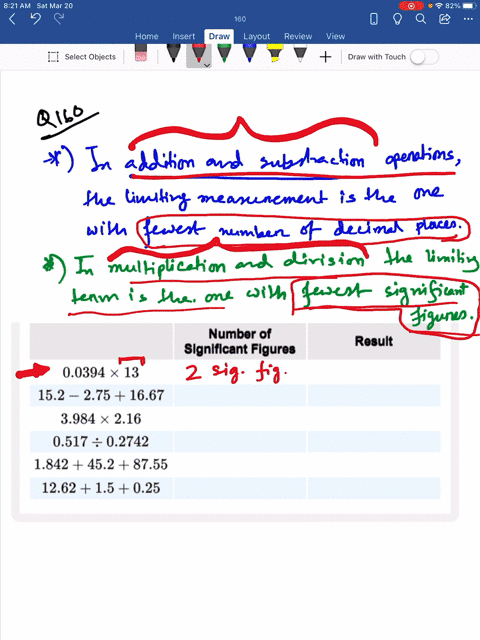 8:21 AM Sat Mar 20
82%
160
Home Insert Draw Layout Review View
Select Objects
Draw with Touch
Q160
*) In addition and substraction operations,
the limiting measurement is the one
with fewest number of decimal places.
*) In multiplication and division the limiting
term is the one with fewest significant
figures.
Number of Significant Figures Result
0.0394 × 13 2 sig. fig.
15.2 − 2.75 + 16.67
3.984 × 2.16
0.517 ÷ 0.2742
1.842 + 45.2 + 87.55
12.62 + 1.5 + 0.25